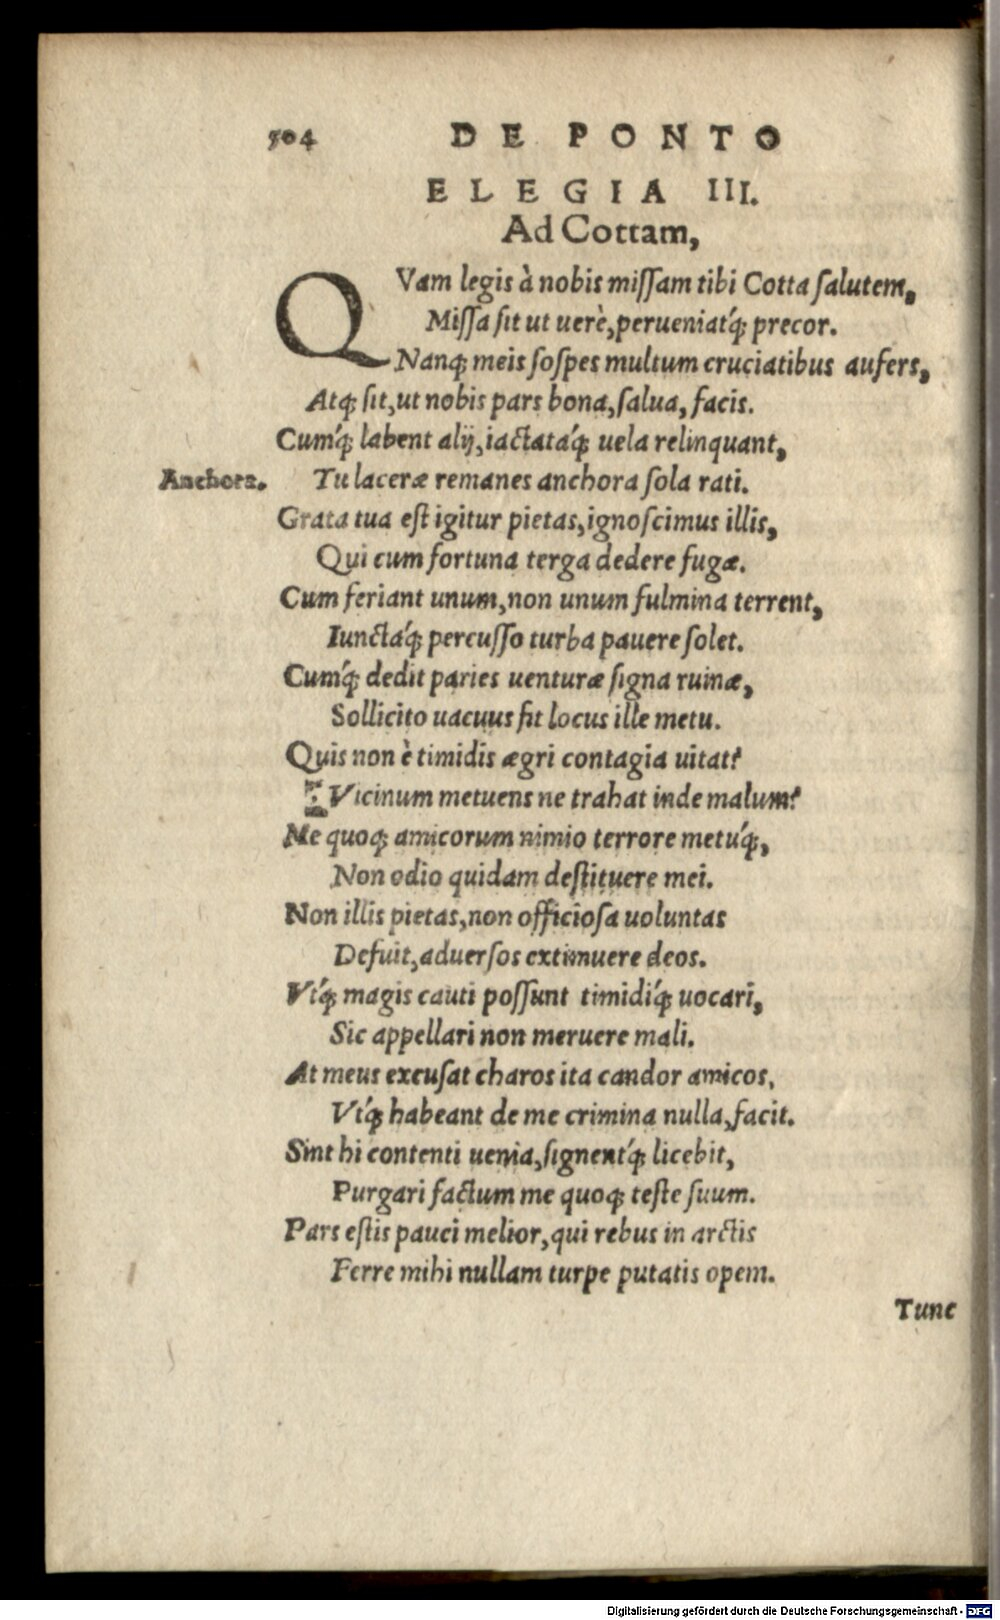 504 DE PONTO
ELEGIA III.
Ad Cottam,
QVam legis à nobis miſſam tibi Cotta ſalutem,
Miſſa ſit ut uerè, perueniatq́ꝫ precor.
Nanqꝫ meis ſoſpes multum cruciatibus aufers,
Atqꝫ ſit, ut nobis pars bona, ſalua, facis.
Cumq́ꝫ labent alij, iactataq́ꝫ uela relinquant,
Anchora. Tu laceræ remanes anchora ſola rati.
Grata tua eſt igitur pietas, ignoſcimus illis,
Qui cum fortuna terga dedere fugæ.
Cum feriant unum, non unum fulmina terrent,
Iunctaq́ꝫ percuſſo turba pauere ſolet.
Cumq́ꝫ dedit paries uenturæ ſigna ruinæ,
Sollicito uacuus fit locus ille metu.
Quis non è timidis ægri contagia uitat?
Vicinum metuens ne trahat inde malum?
Me quoqꝫ amicorum nimio terrore metuq́ꝫ,
Non odio quidam deſtituere mei.
Non illis pietas, non officioſa uoluntas
Defuit, aduerſos extimuere deos.
Vtq́ꝫ magis cauti poſſunt timidiq́ꝫ uocari,
Sic appellari non meruere mali.
At meus excuſat charos ita candor amicos,
Vtq́ꝫ habeant de me crimina nulla, facit.
Sint hi contenti uenia, ſignentq́ꝫ licebit,
Purgari factum me quoqꝫ teſte ſuum.
Pars eſtis pauci melior, qui rebus in arctis
Ferre mihi nullam turpe putatis opem.
Tunc
Digitalisierung gefördert durch die Deutsche Forschungsgemeinschaft - DFG